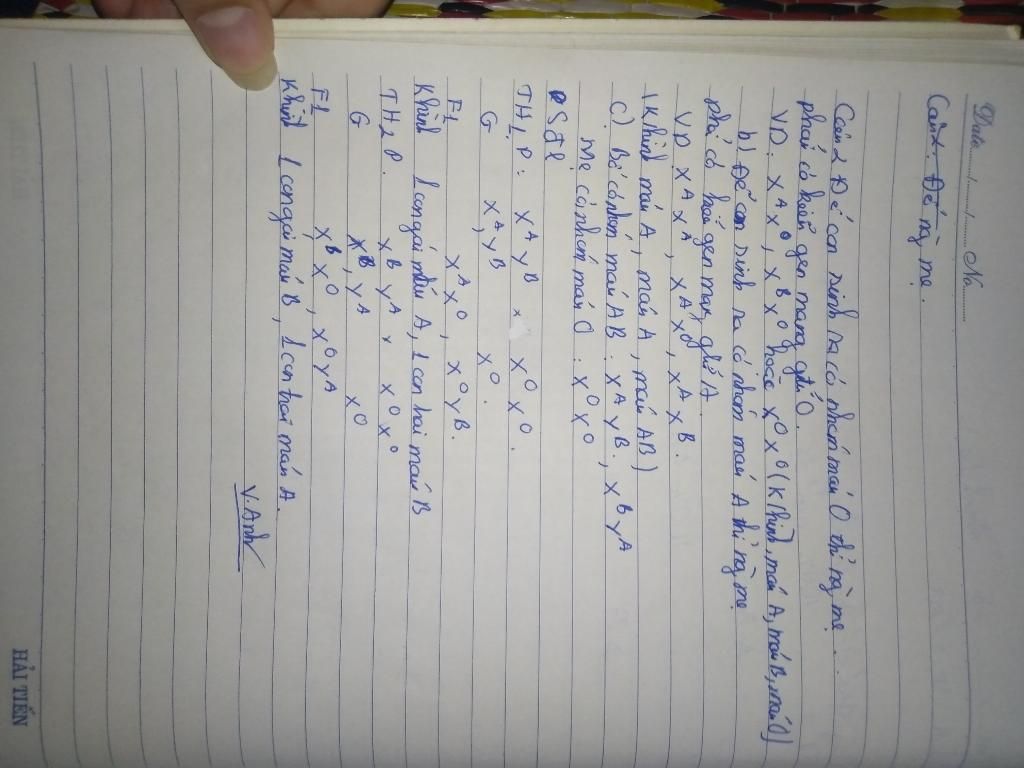 Date ....../....../...... No..........
Câu 2. Để ng mẹ.
Câu 2 Để con sinh ra có nhóm máu O thì ng mẹ
phải có kiểu gen mang giá O.
VD: X^A X^O, X^B X^O hoặc X^O X^O (K hình máu A, máu B, máu O)
b) Để con sinh ra có nhóm máu A thì ng mẹ
phải có kiểu gen mang giá A.
VD X^A X^A, X^A X^O, X^A X^B.
(K hình máu A, máu A, máu AB)
C) Bố có nhóm máu AB: X^A Y^B, X^B Y^A
Mẹ có nhóm máu O: X^O X^O
Sđl
TH1 P: X^A Y^B x X^O X^O.
G X^A, Y^B X^O.
F1 X^A X^O, X^O Y^B.
K hình 1 con gái máu A, 1 con trai máu B
TH2 P. X^B Y^A x X^O X^O
G X^B, Y^A X^O
F1 X^B X^O, X^O Y^A
K hình 1 con gái máu B, 1 con trai máu A.
V.Anh
HẢI TIẾN